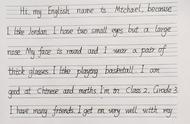 Hi, my English name is Michael, because
I like Jordan. I have two small eyes but a large
nose. My face is round and I wear a pair of
thick glasses. I like playing basketball. I am
good at Chinese and maths. I'm in Class 2, Grade 3
I have many friends. I get on very well with my